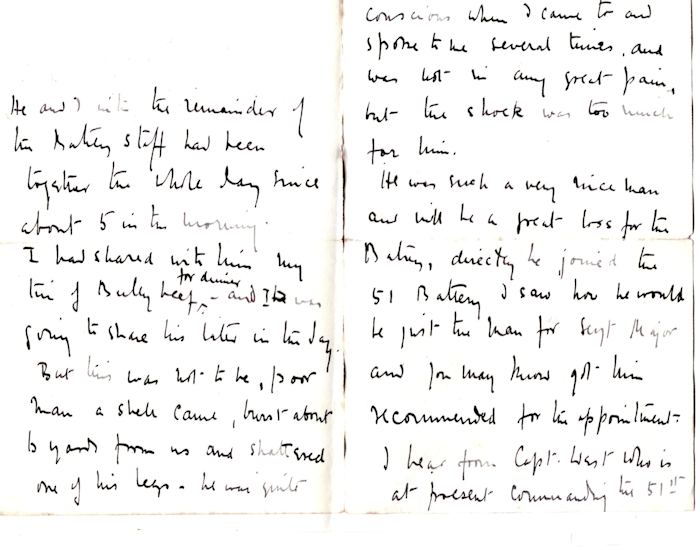 He and I with the remainder of
the Battery staff had been
together the whole day since
about 5 in the morning.
I had shared with him my
for dinner
tin of Bully beef, - and I was
going to share his later in the day.
But this was not to be, poor
man a shell came, burst about
6 yards from us and shattered
one of his legs - he was quite
conscious when I came to and
spoke to me several times, and
was not in any great pain,
but the shock was too much
for him.
He was such a very nice man
and will be a great loss for the
Battery, directly he joined the
51 Battery I saw how he would
be just the man for Sergt Major
and you may know got him
recommended for the appointment-
I hear from Capt. West who is
at present commanding the 51st